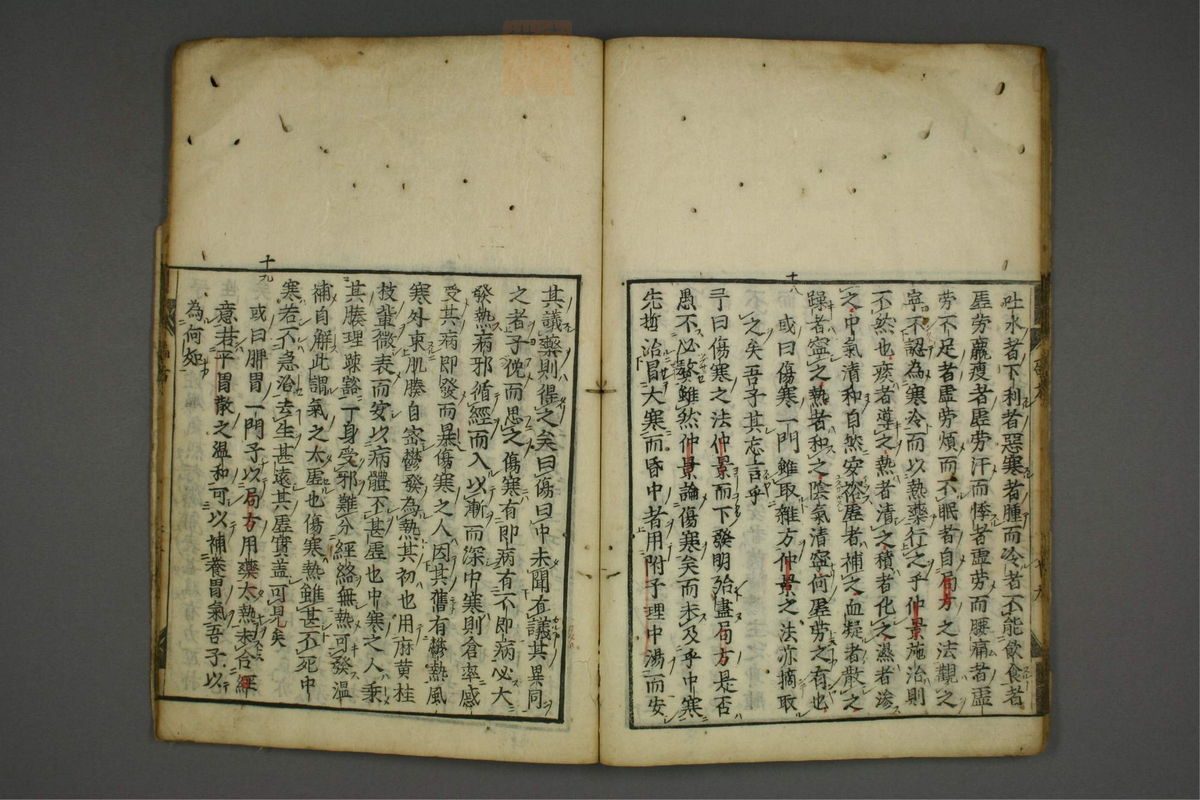 吐水者下利者惡寒者腫而冷者不能飲食者
虛労羸瘦者虛労汗而悸者虛労而腰痛者虛
労不足者虛労煩而不眠者自局方之法觀之
寧不認為寒冷而以熱藥行之乎仲景施治則
不然也痰者導之熱者清之積者化之濕者滲
之中氣清和自然安裕虛者補之血凝者散之
躁者寧之熱者和之陰氣清寧何虛労之有也
十八
或曰傷寒一門雖取雜方仲景之法亦摘取
之矣吾子其忘言乎
予曰傷寒之法仲景而下發明殆盡局方是否
愚不必贅雖然仲景論傷寒矣而未及乎中寒
先哲治冒大寒而昏中者用附子理中湯而安
其議藥則得之矣曰傷曰中未聞有議其異同
之者予俛而思之傷寒有即病有不即病必大
發熱病邪循經而入以漸而深中寒則倉率感
受其病即發而暴傷寒之人因其舊有欝熱風
寒外束肌腠自密鬱發為熱其初也用麻黄桂
枝輩微表而安以病體不甚虛也中寒之人乘
其腠理踈豁一身受邪難分經絡無熱可發温
補自解此謂氣之大虛也傷寒熱雖甚不死中
寒若不急治去生甚遠其虛實盖可見矣
十九
或曰脾胃一門子以局方用藥太熱未合經
意若平胃散之温和可以補養胃氣吾子以
為何如